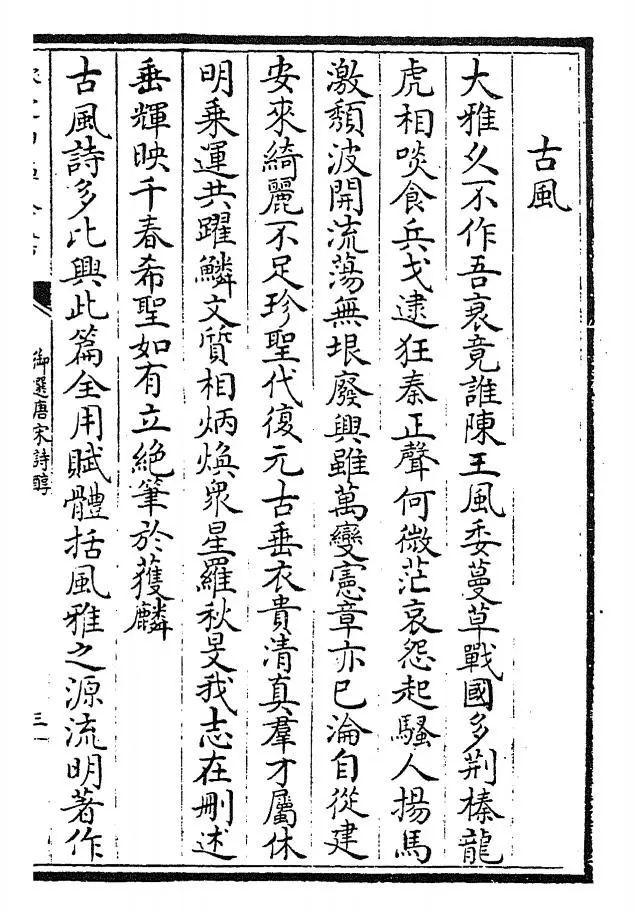 古風
大雅久不作吾衰竟誰陳王風委蔓草戰國多荆榛龍
虎相啖食兵戈逮狂秦正聲何微茫哀怨起騷人揚馬
激頽波開流蕩無垠廢興雖萬變憲章亦已淪自從建
安來綺麗不足珍聖代復元古垂衣貴清真羣才屬休
明乘運共躍鱗文質相炳煥衆星羅秋旻我志在刪述
垂輝映千春希聖如有立絶筆於獲麟
古風詩多比興此篇全用賦體括風雅之源流明著作
御選唐宋詩醇